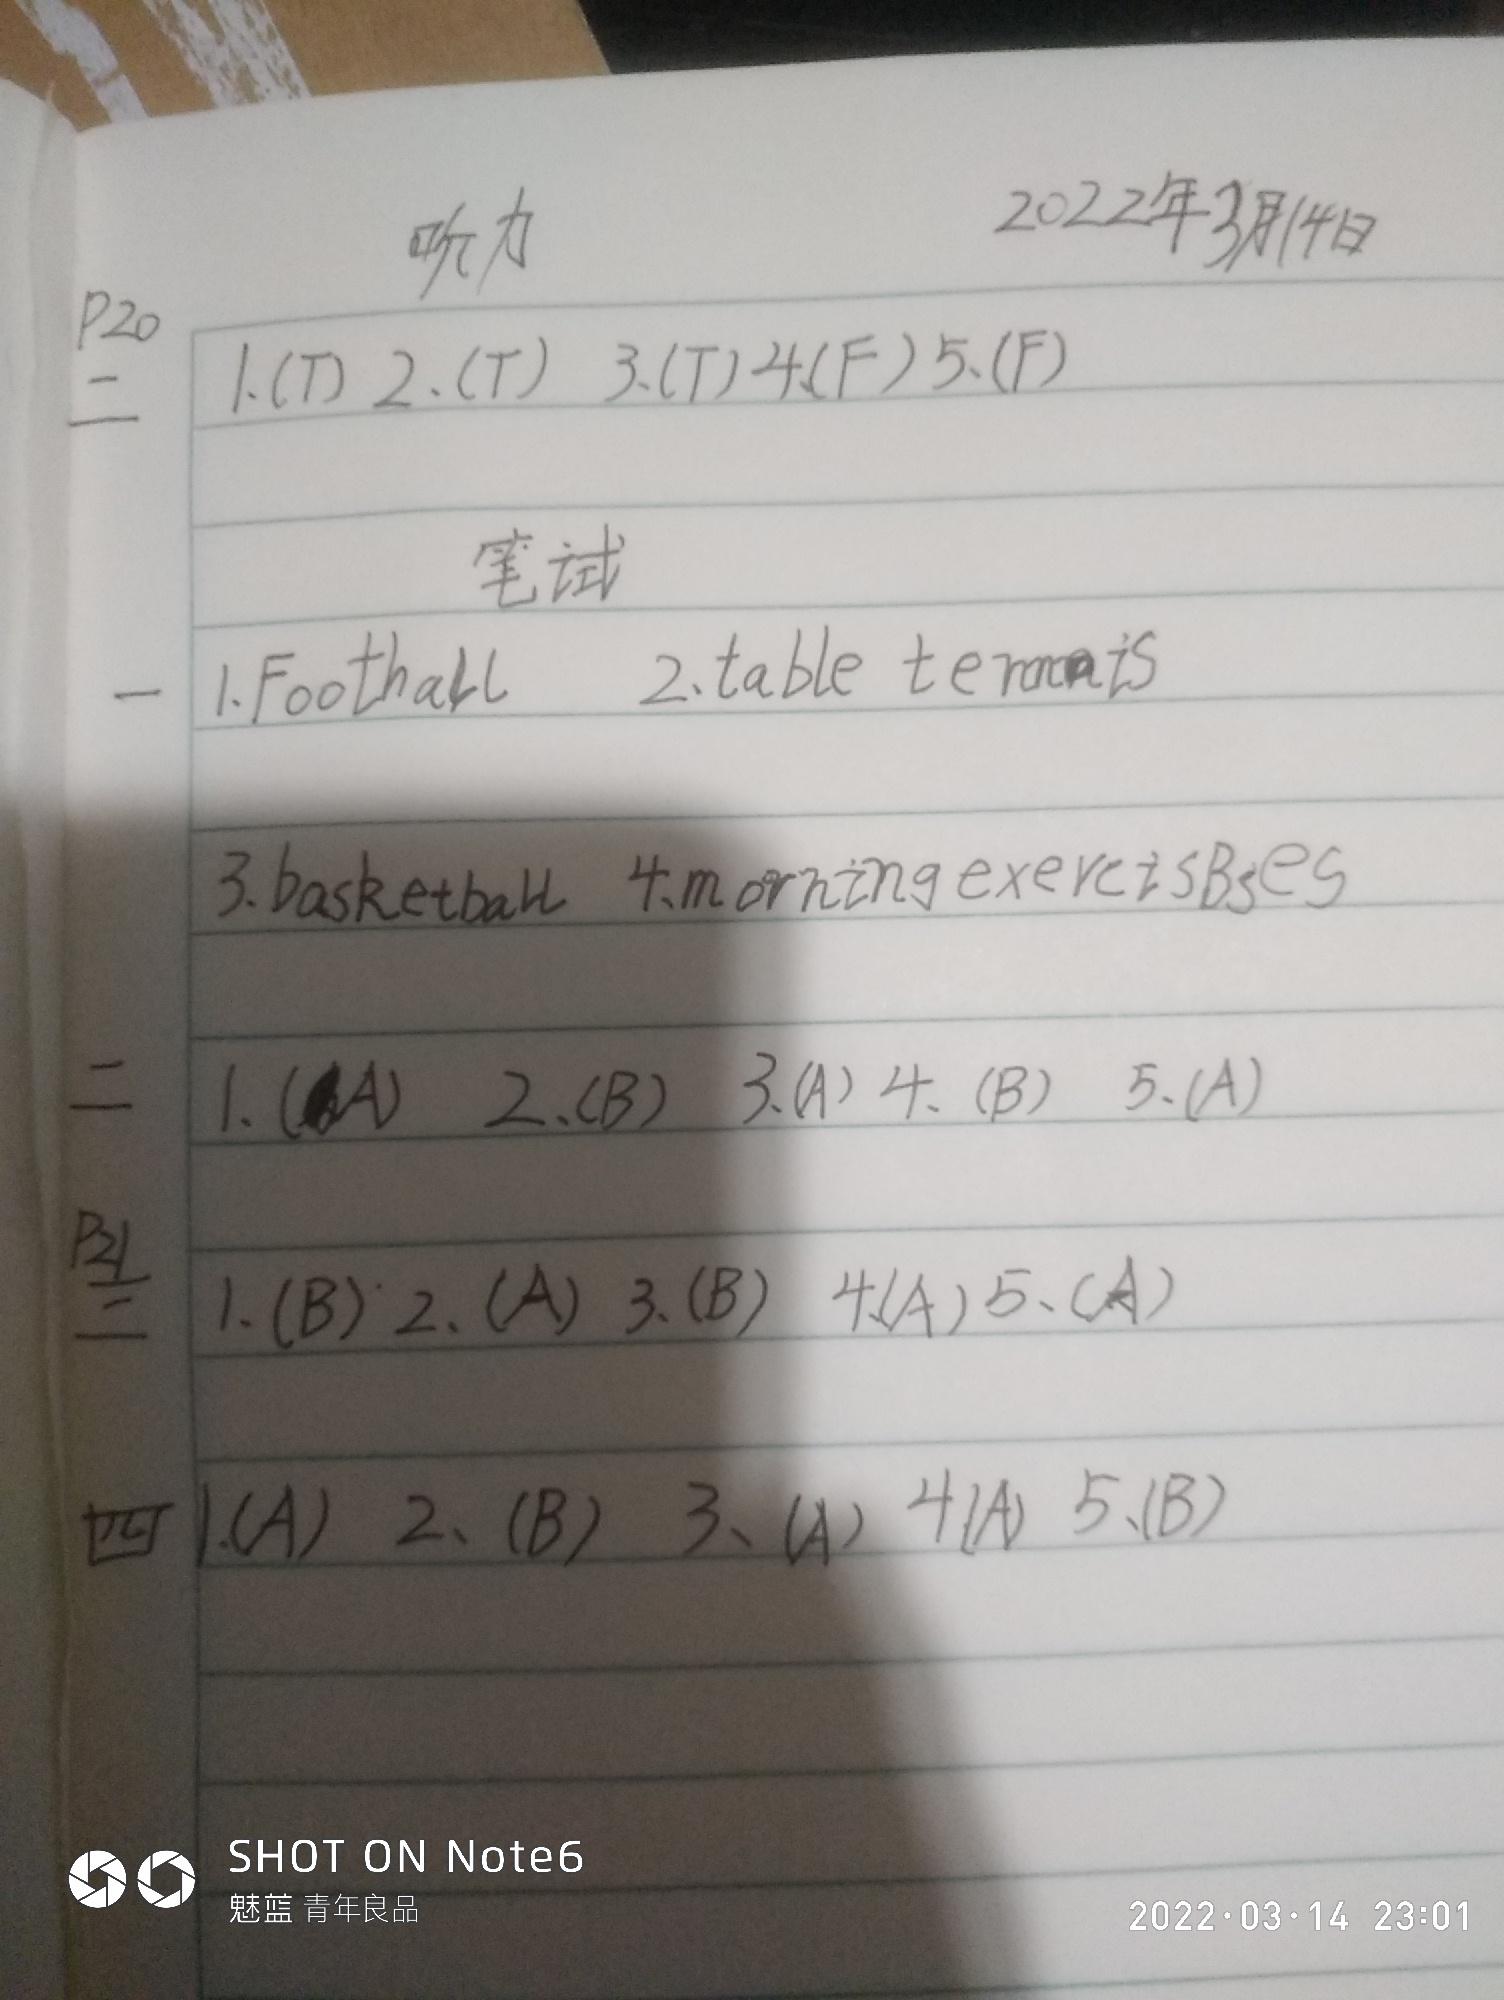 听力 2022年3月14日
P20
二 1.(T) 2.(T) 3.(T) 4.(F) 5.(F)
笔试
一 1.Foothall 2.table
3.basketball 4.morning
二 1.(A) 2.(B) 3.(A) 4.(B) 5.(A)
P21
三 1.(B) 2.(A) 3.(B) 4.(A) 5.(A)
四 1.(A) 2.(B) 3.(A) 4.(A) 5.(B)
SHOT ON Note6
魅蓝 青年良品
2022·03·14 23:01